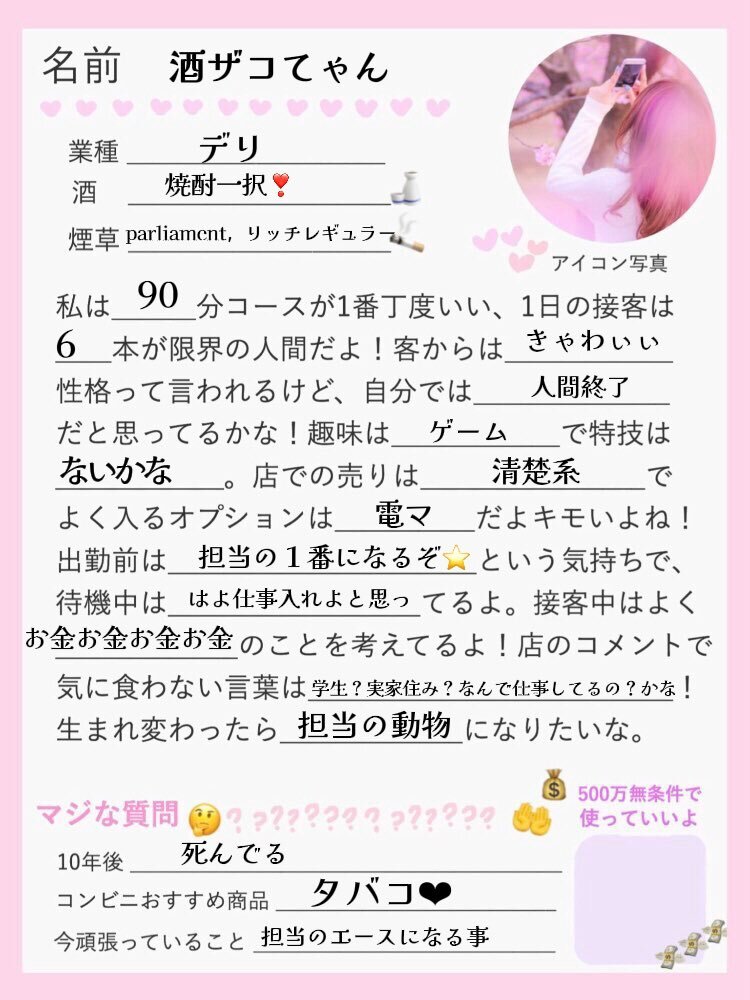 名前 酒ザコてゃん
業種 デリ
酒 焼酎一択❣️🍶
煙草 parliament，リッチレギュラー🚬
アイコン写真
私は 90 分コースが1番丁度いい、1日の接客は
6 本が限界の人間だよ！客からは きゃわぃぃ
性格って言われるけど、自分では 人間終了
だと思ってるかな！趣味は ゲーム で特技は
ないかな 。店での売りは 清楚系 で
よく入るオプションは 電マ だよキモいよね！
出勤前は 担当の１番になるぞ⭐ という気持ちで、
待機中は はよ仕事入れよと思っ てるよ。接客中はよく
お金お金お金お金 のことを考えてるよ！店のコメントで
気に食わない言葉は 学生？実家住み？なんで仕事してるの？かな ！
生まれ変わったら 担当の動物 になりたいな。
マジな質問🤔? ??????? ??????
💰 500万無条件で
🤲 使っていいよ
10年後 死んでる
コンビニおすすめ商品 タバコ❤
今頑張っていること 担当のエースになる事